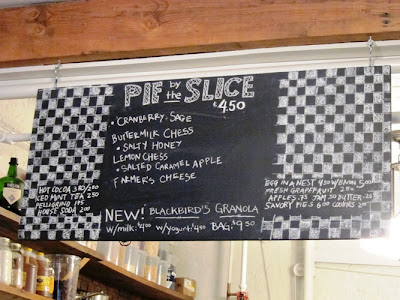 PIE by the SLICE
$4.50
• CRANBERRY SAGE
BUTTERMILK CHESS
• SALTY HONEY
LEMON CHESS
• SALTED CARAMEL APPLE
FARMER'S CHEESE
HOT COCOA 3
ICED MINT TEA 250
PELLEGRINO 175
HOUSE SODA 200
EGG IN A NEST 450 W/BACON 500
FRESH GRAPEFRUIT 200
APPLES .75 JAM .50 BUTTER .25
SAVORY PIES 6.00 COOKIES
NEW! BLACKBIRD'S GRANOLA
W/MILK: $4.00 W/YOGURT: $4.50 BAG: $9.50